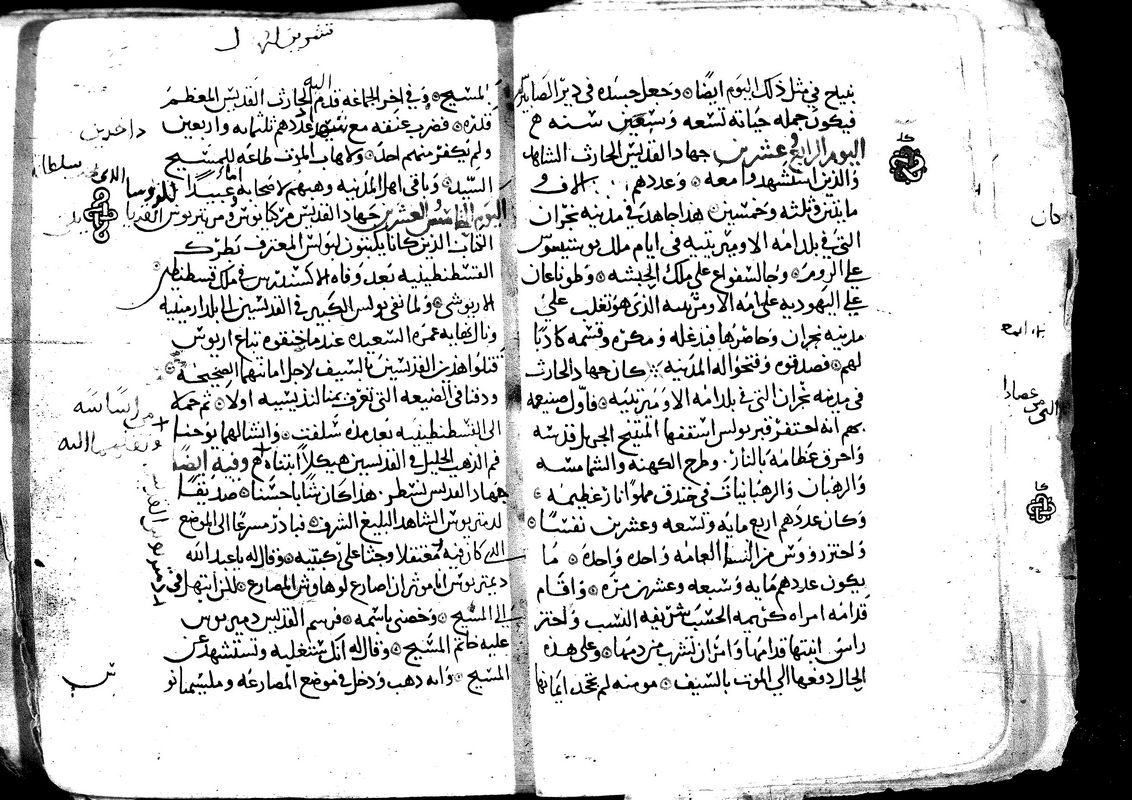 بنيح في مثل ذلك اليوم ايضًا وجعل جسده في دير الصابرين
فيكون جملة حياته تسعه وتسعين سنه
اليوم الرابع وعشرين جهاد القديس الحارث الشاهد
والذين استشهدوا معه وعددهم الاف و
مايتين وثلثه وخمسين هذا جاهد في مدينه نجران
التي في بلد امه الاوميريتيه في ايام ملك يوستينوس
علي الروم والسفواع على ملك الحبشه وطوناعان
علي اليهوديه على امه الاوميريتيه الذي هو تغلب علي
مدينه نجران وحاضرها فدغله ومكره وقسمه كاذبًا
لهم فصدقوه وفتحوا له المدينه كان جهاد الحارث
في مدينه نجران التي في بلد امه الاوميريتيه فاول صنيعه
بهم انه احتفر قبر بولس اسقفها المتنيح الجميل قدسه
واحرق عظامه بالنار وطرح الكهنه والشمامسه
والرهبان والرهبانيات في خندق مملوا نار عظيمه
وكان عددهم اربع مايه وتسعه وعشرين نفسًا
واحتز رووس من النسا العامه واحده واحده ما
يكون عددهم مايه وسبعه وعشرين مره واقام
قدامه امراه كريمه الحسب شريفه النسب واحتز
راس ابنتها قدامها وامر ان تشرب من دمها وعلى هذه
الحال دفعها الى الموت بالسيف مومنه لم تجحد ايمانها
تشرين الاول
المسيح وفي اخر الجماعه قدم اليه الحارث القديس المعظم
قدره فضرب عنقه مع عددهم ثلثمايه واربعين
ولم يكفر منهم احد ولا هاب الموت طاعه للمسيح
السيد وباقي اهل المدينه وهبهم لاصحابه عبيدًا
اليوم الخامس والعشرين جهاد القديس مركيانوس ومرتيريوس القديسا
اللذين كانا يكتبون لبولس المعترف بطرك
القسطنطينيه بعد وفاه الاكسندرس في ملك قسطنطس
الاريوشي ولما نفي بولس الكبير في القديسين الى بلد ارمينيه
ونال نهايه عمره السعيده عندما خنقوه تباع اريوس
قتلوا هذين القديسين بالسيف لاجل امانتهما الصحيحه
ودفنا في الضيعه التي تعرف اولا ثم حملا
الى القسطنطينيه بعد مده سلفت وانشا لهما يوحنا
فم الذهب الجليل في القديسين هيكلا ابتناه وفيه ايضًا
جهاد القديس نسطر هذا كان شابا حسنا صديقًا
لدمتريوس الشاهد البليغ الشرف فبادر مسرعًا الى الموضع
الذي كان فيه معتقلا وجثا على ركبتيه وقال له يا عبد الله
ديمتريوس انا موثر ان اصارع لوهاوش المصارع لكن ابتهل في
الى المسيح وخصني باسمه فرسم القديس دميريوس
عليه خاتم المسيح وقال له انك ستغلبه وتستشهد عن
المسيح وانه ذهب ودخل في موضع المصارعه وملتيميانو